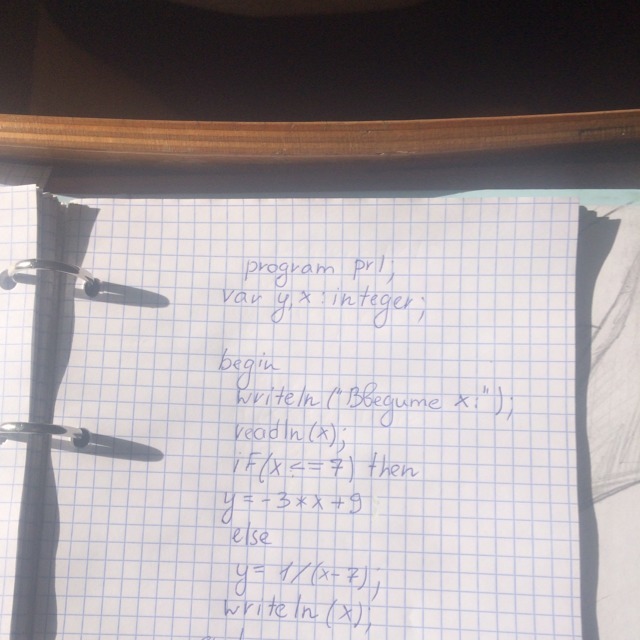 program pr1;
var y, x : integer;
begin
writeln ("Введите x:");
readln (x);
if (x <= 7) then
y = -3*x+9
else
y = 1/(x-7);
writeln (x);